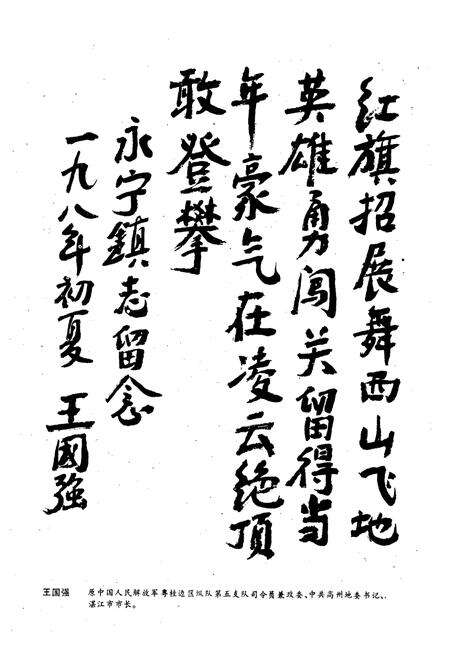 红旗招展舞西山飞地
英雄勇闯关留得当
年豪气在凌云绝顶
敢登攀
永宁鎮志留念
一九八年初夏 王國強
王国强 原中国人民解放军粤桂边区纵队第五支队司令员兼政委、中共高州地委书记、
湛江市市长。